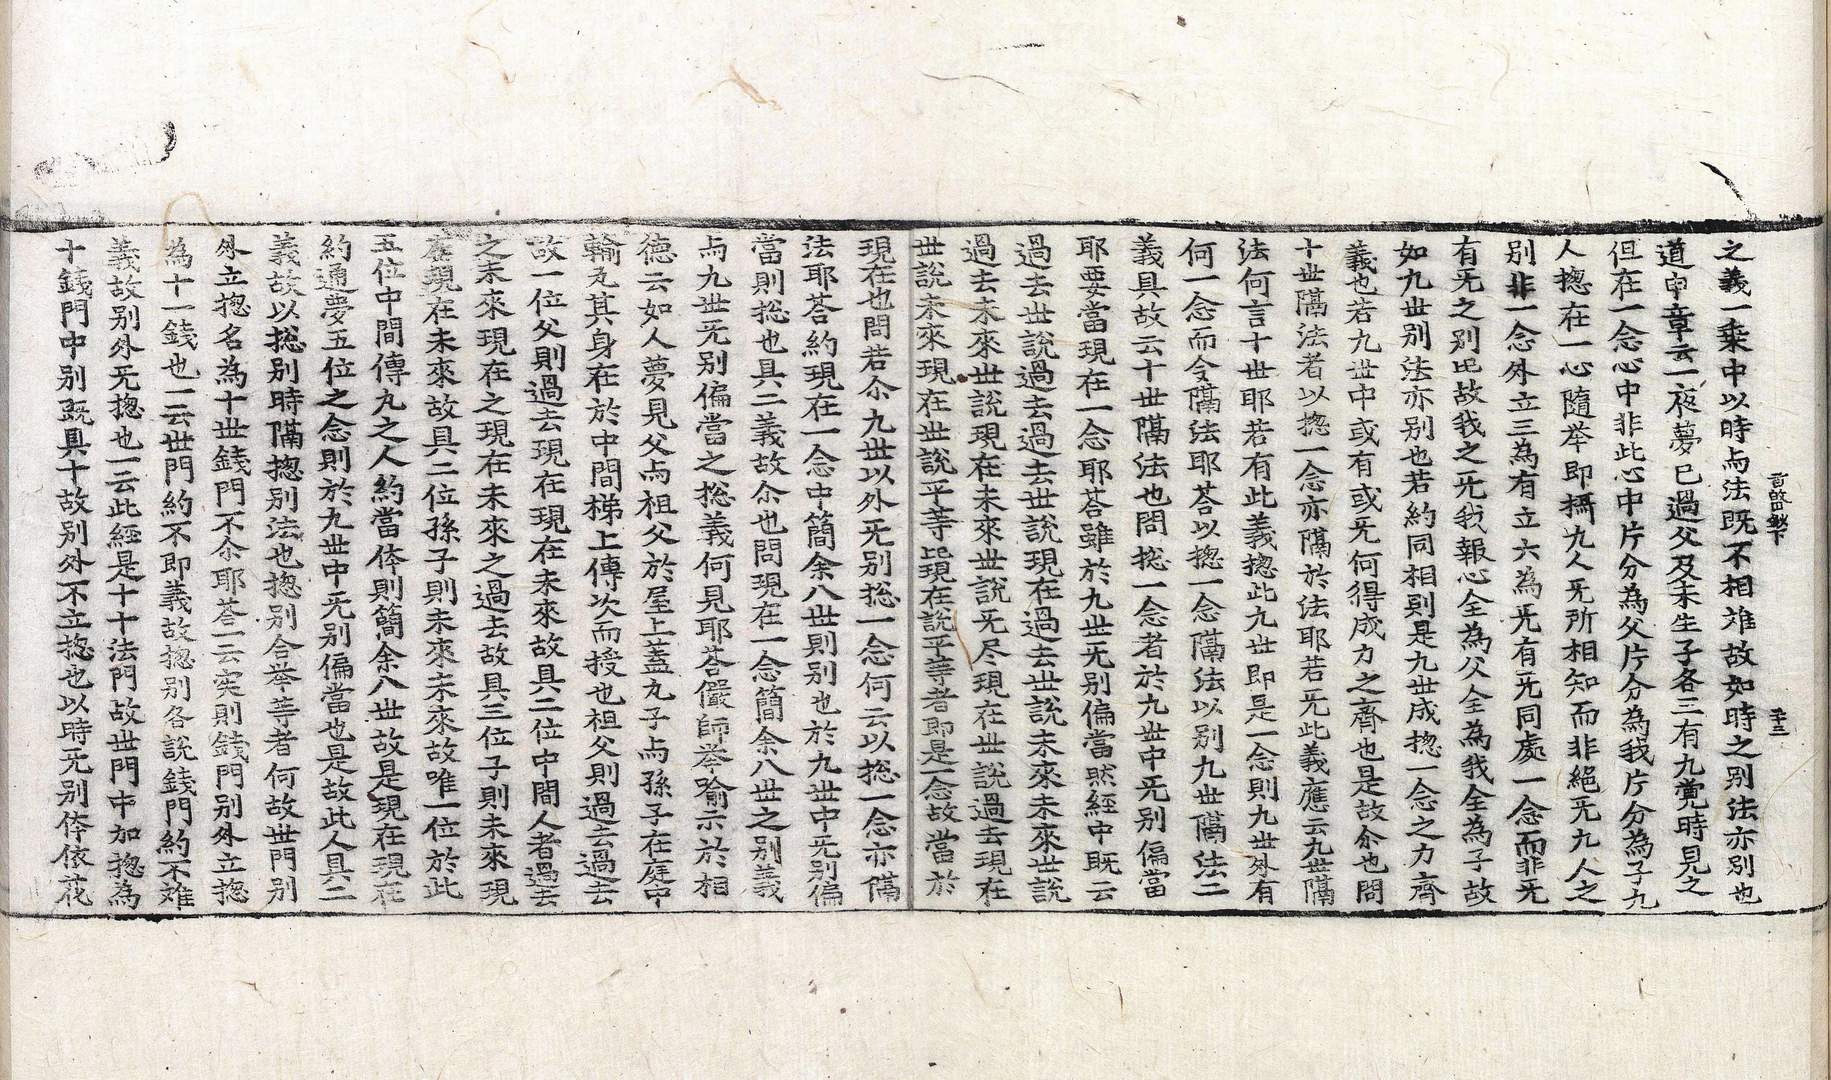 之義一乗中以時与法既不相难故如時之别法亦别也
道申章云一夜夢已過父及未生子各三有九覺時見之
但在一念心中非此心中片分為父片分為我片分為子九
人摠在一心隨举即攝九人旡所相知而非絕旡九人之
别非一念外立三為有立六為旡有旡同處一念而非旡
有旡之别毘故我之旡我報心全為父全為我全為子故
如九世别法亦别也若約同相則是九世成摠一念之力齊
義也若九世中或有或旡何得成力之齊也是故尒也問
十世隔法者以摠一念亦隔於法耶若旡此義應云九世隔
法何言十世耶若有此義摠此九世即是一念則九世外有
何一念而令隔法耶荅以摠一念隔法以别九世隔法二
義具故云十世隔法也問摠一念者於九世中旡别偏當
耶要當現在一念耶荅雖於九世旡别偏當然經中既云
過去世說過去過去世說現在過去世說未來未來世說
過去未來世說現在未來世說旡尽現在世說過去現在
世說未來現在世說平等毘現在說平等者即是一念故當於
現在也問若尒九世以外旡别摠一念何云以摠一念亦隔
法耶荅約現在一念中簡余八世則别也於九世中旡别偏
當則摠也具二義故尒也問現在一念簡余八世之别義
与九世旡别偏當之摠義何見耶荅儼師举喻示於相
德云如人夢見父与祖父於屋上蓋九子与孫子在庭中
輪瓦其身在於中間梯上傳次而授也祖父則過去過去
故一位父則過去現在現在未來故具二位中間人者過去
之未來現在之現在未來之過去故具三位子則未來現
在現在未來故具二位孫子則未來未來故唯一位於此
五位中間傳瓦之人約當体則簡余八世故是現在現在
約通夢五位之念則於九世中旡别偏當也是故此人具二
義故以摠别時隔摠别法也摠别合举等者何故世門别
外立摠名為十世錢門不尒耶荅一云実則錢門别外立摠
為十一錢也一云世門約不即義故摠别各說錢門約不难
義故别外旡摠也一云此經是十十法門故世門中加摠為
十錢門中别既具十故别外不立摠也以時旡别体依花